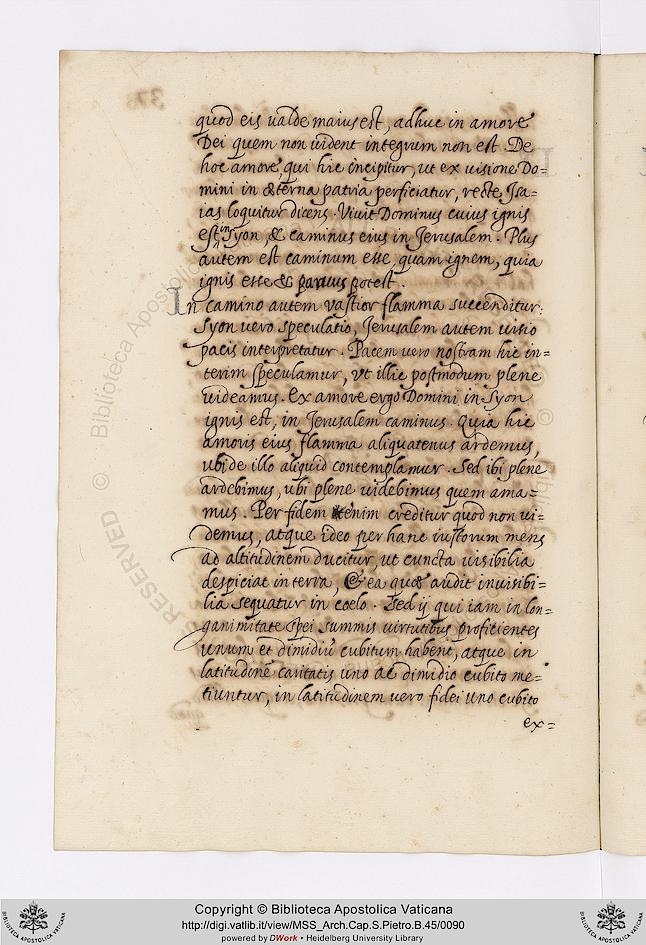 quod eis ualde maius est, adhuc in amore
Dei quem non uident integrum non est. De
hoc amore, qui hic incipitur, ut ex uisione Do=
mini in æterna patria perficiatur, recte Isa=
ias loquitur dicens. Viuit Dominus cuius ignis
est in Syon, & caminus eius in Jerusalem. Plus
autem est caminum esse, quam ignem, quia
ignis esse & paruus potest.
In camino autem vastior flamma succenditur.
Syon vero speculatio, Jerusalem autem uisio
pacis interpretatur. Pacem vero nostram hic in=
terim speculamur, vt illic postmodum plene
uideamus. Ex amore ergo Domini in Syon
ignis est, in Jerusalem caminus. Quia hic
amoris eius flamma aliquatenus ardemus,
ubi de illo aliquid contemplamur. Sed ibi plene
ardebimus, ubi plene uidebimus quem ama=
mus. Per fidem enim creditur quod non ui=
demus, atque ideo per hanc iustorum mens
ad altitudinem ducitur, ut cuncta uisibilia
despiciat in terra, & ea quæ audit inuisibi=
lia sequatur in coelo. Sed ij qui iam in lon=
ganimitate spei summis uirtutibus proficientes
unum et dimidiũ cubitum habent, atque in
latitudinẽ caritatis uno ac dimidio cubito me=
tiuntur, in latitudinem vero fidei uno cubito
ex=
RESERVED © Biblioteca Apostolica
Copyright © Biblioteca Apostolica Vaticana
http://digi.vatlib.it/view/MSS_Arch.Cap.S.Pietro.B.45/0090
powered by DWork • Heidelberg University Library
BIBLIOTECA APOSTOLICA VATICANA
BIBLIOTECA APOSTOLICA VATICANA